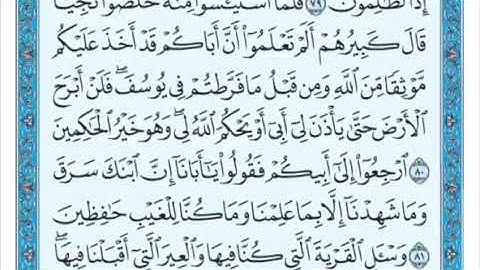 إِذًا لَّظَٰلِمُونَ ٧٩ فَلَمَّا ٱسْتَيْـَٔسُوا۟ مِنْهُ خَلَصُوا۟ نَجِيًّا
قَالَ كَبِيرُهُمْ أَلَمْ تَعْلَمُوٓا۟ أَنَّ أَبَاكُمْ قَدْ أَخَذَ عَلَيْكُم
مَّوْثِقًا مِّنَ ٱللَّهِ وَمِن قَبْلُ مَا فَرَّطتُمْ فِى يُوسُفَ ۖ فَلَنْ أَبْرَحَ
ٱلْأَرْضَ حَتَّىٰ يَأْذَنَ لِىٓ أَبِىٓ أَوْ يَحْكُمَ ٱللَّهُ لِى ۖ وَهُوَ خَيْرُ ٱلْحَٰكِمِينَ
٨٠ ٱرْجِعُوٓا۟ إِلَىٰٓ أَبِيكُمْ فَقُولُوا۟ يَٰٓأَبَانَآ إِنَّ ٱبْنَكَ سَرَقَ
وَمَا شَهِدْنَآ إِلَّا بِمَا عَلِمْنَا وَمَا كُنَّا لِلْغَيْبِ حَٰفِظِينَ
٨١ وَسْـَٔلِ ٱلْقَرْيَةَ ٱلَّتِى كُنَّا فِيهَا وَٱلْعِيرَ ٱلَّتِىٓ أَقْبَلْنَا فِيهَا ۖ